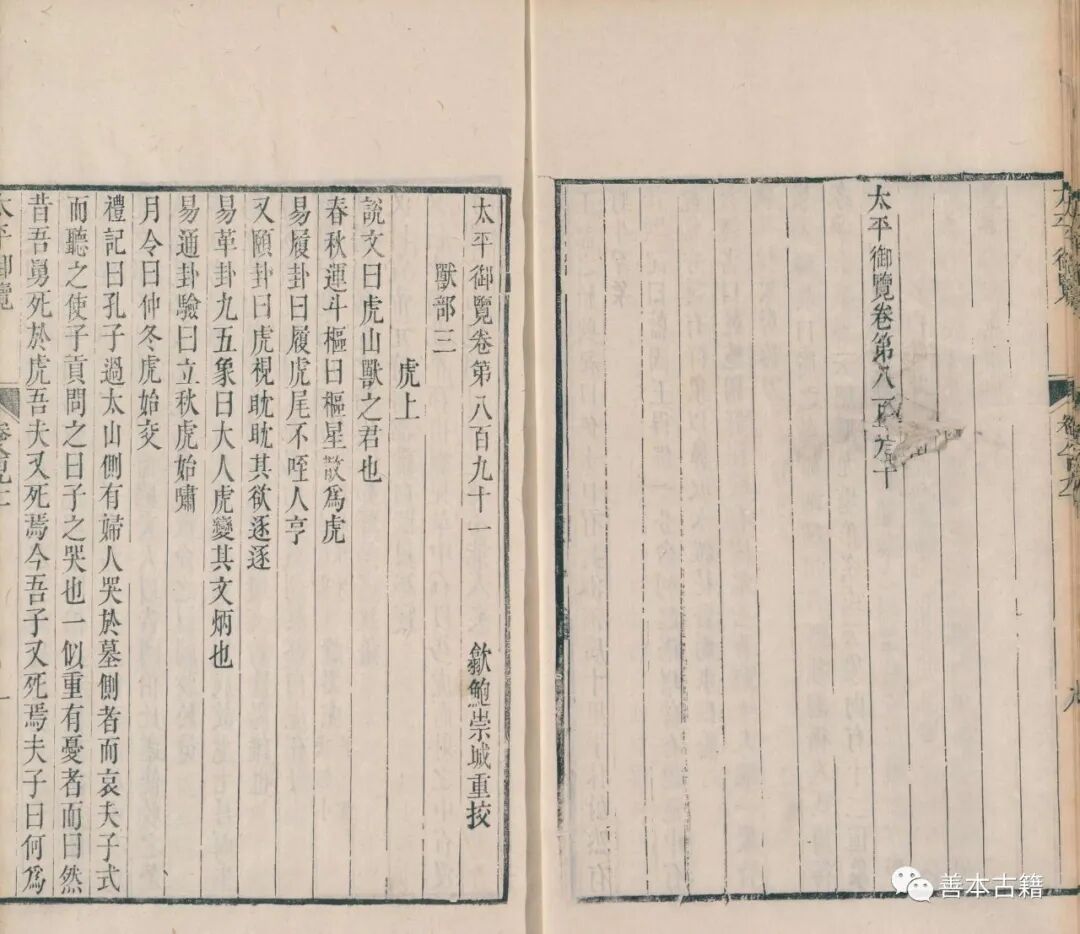 太平御覽卷第八百九十
太平御覽卷第八百九十一
歙鮑崇城重挍
獸部三
虎上
說文曰虎山獸之君也
春秋運斗樞曰樞星散爲虎
易履卦曰履虎尾不咥人亨
又頤卦曰虎視眈眈其欲逐逐
易革卦九五象曰大人虎變其文炳也
易通卦驗曰立秋虎始嘯
月令曰仲冬虎始交
禮記曰孔子過太山側有婦人哭於墓側者而哀夫子式
而聽之使子貢問之曰子之哭也一似重有憂者而曰然
昔吾舅死於虎吾夫又死焉今吾子又死焉夫子曰何爲
太平御覽
善本古籍